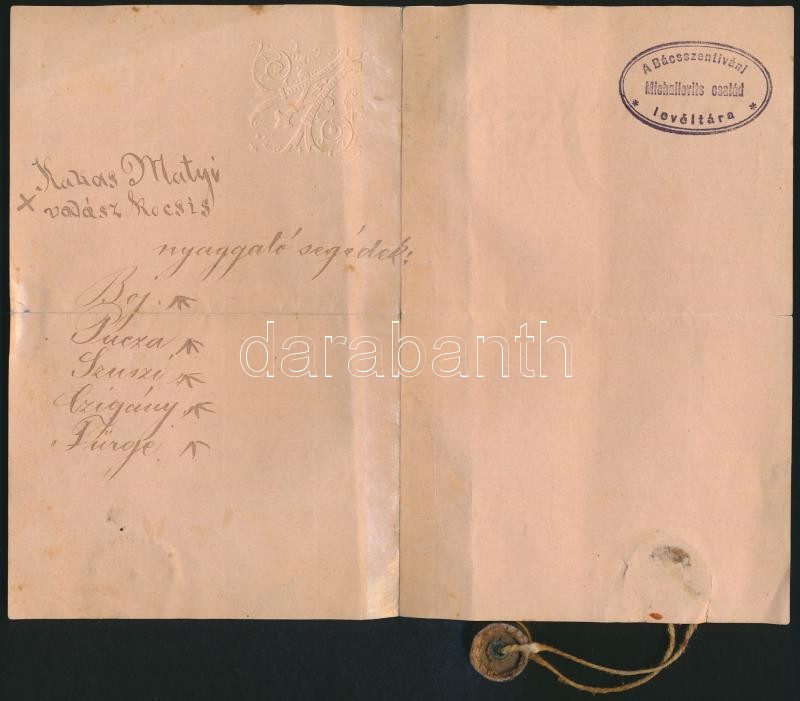 A Bácsszentiváni
Mihailovits család
* levéltára *
Kakas Matyi
x vadász kocsis
nyaggató segédek:
Boj.
Pucza,
Szuszi,
Czigány,
Fürge.
darabanth